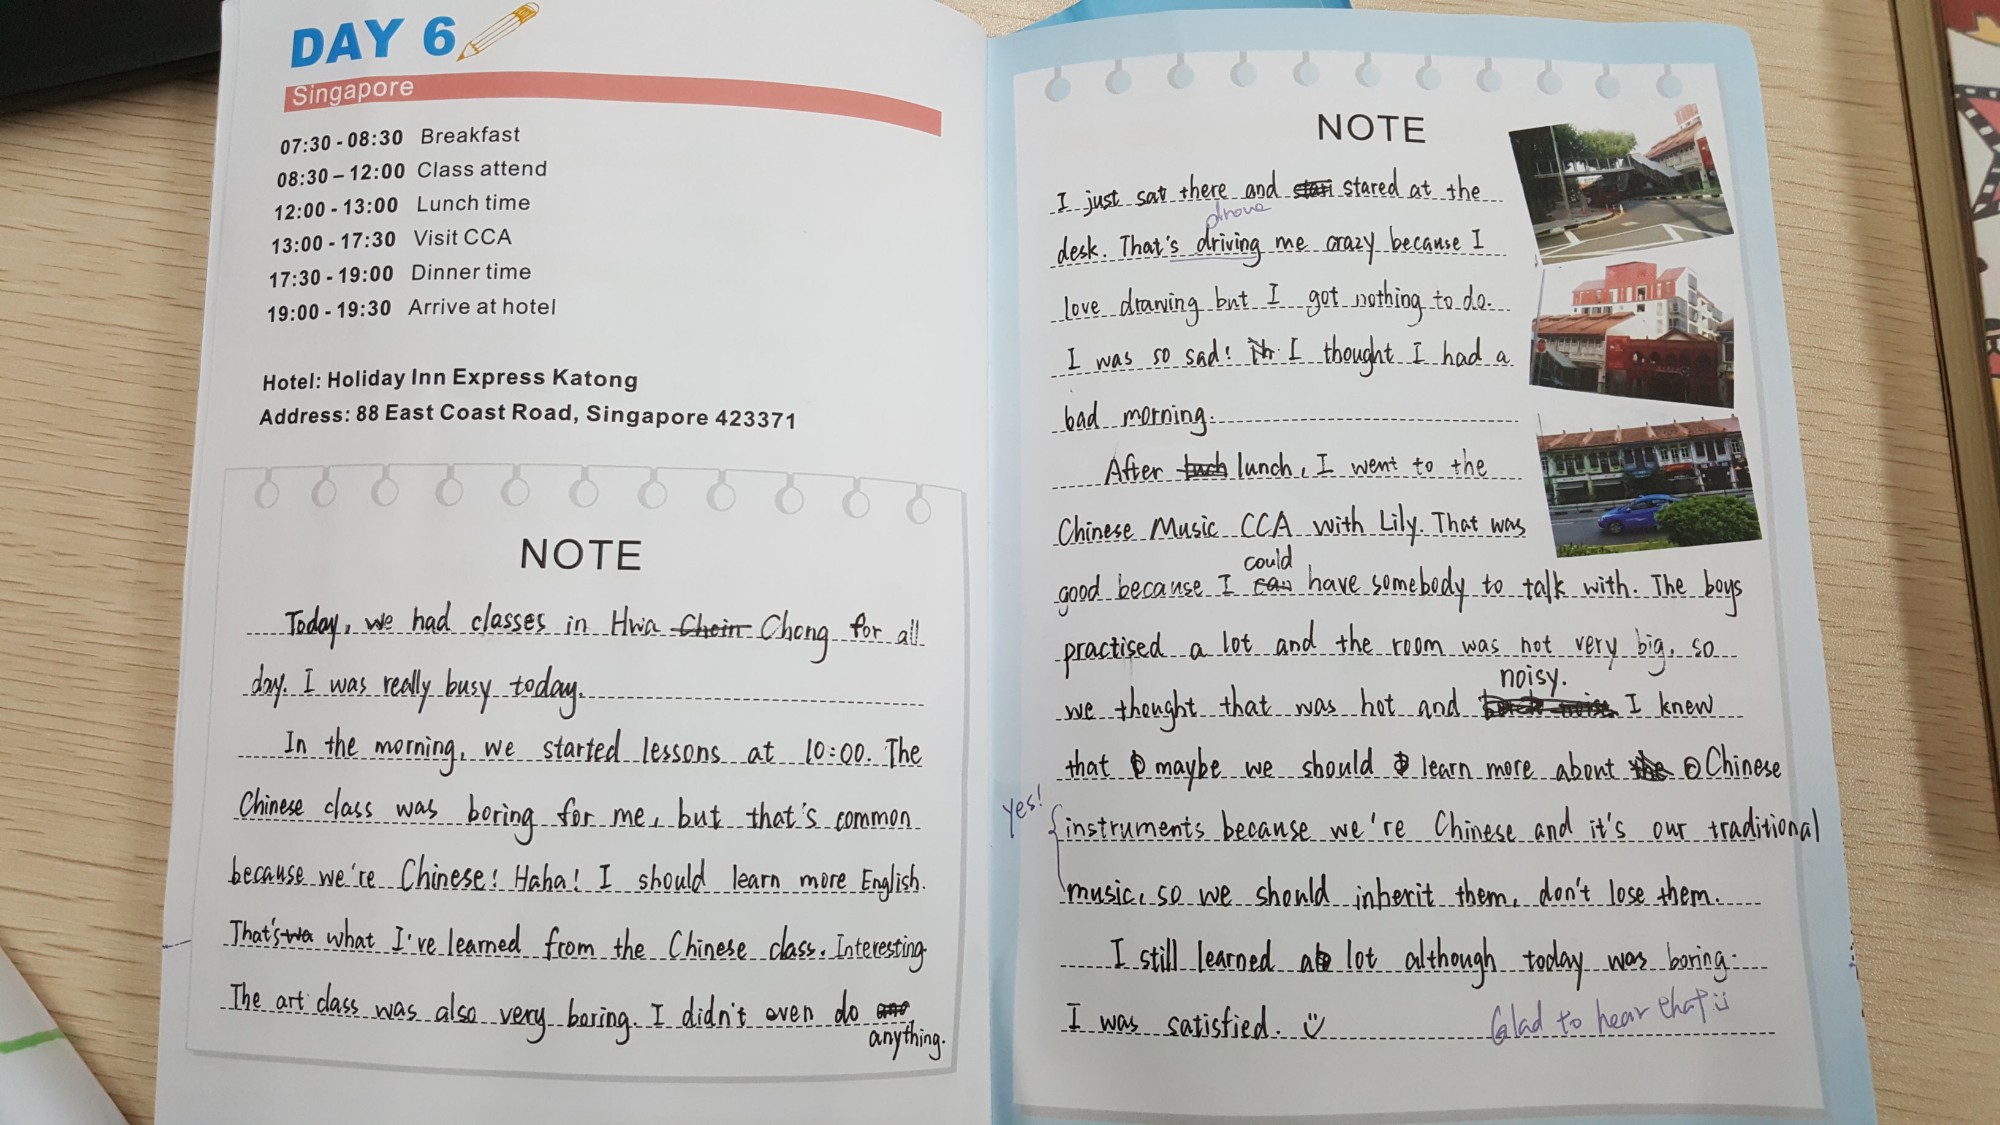 DAY 6
Singapore
07:30 - 08:30 Breakfast
08:30 – 12:00 Class attend
12:00 - 13:00 Lunch time
13:00 - 17:30 Visit CCA
17:30 - 19:00 Dinner time
19:00 - 19:30 Arrive at hotel
Hotel: Holiday Inn Express Katong
Address: 88 East Coast Road, Singapore 423371
NOTE
Today, we had classes in Hwa Chong for all
day. I was really busy today.
In the morning, we started lessons at 10:00. The
Chinese class was boring for me, but that's common
because we're Chinese! Haha! I should learn more English.
That's what I've learned from the Chinese class. Interesting
The art class was also very boring. I didn't even do
anything.
NOTE
I just sat there and stared at the
drove
desk. That's driving me crazy because I
love drawing but I got nothing to do.
I was so sad! I thought I had a
bad morning.
After lunch, I went to the
Chinese Music CCA with Lily. That was
could
good because I can have somebody to talk with. The boys
practised a lot and the room was not very big, so
noisy.
we thought that was hot and I knew
that maybe we should learn more about Chinese
yes!
instruments because we're Chinese and it's our traditional
music, so we should inherit them, don't lose them.
I still learned a lot although today was boring.
I was satisfied.
Glad to hear that